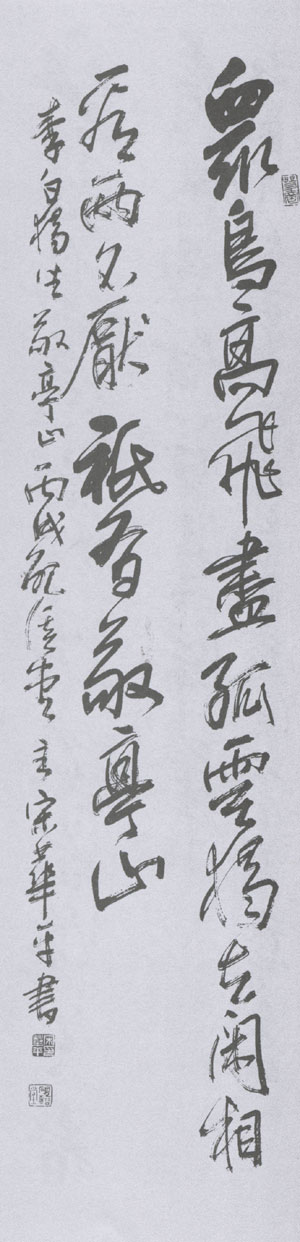 眾鳥高飛盡孤雲獨去閑相
看兩不厭祗有敬亭山
李白獨坐敬亭山丙戌 堂主宋華平書